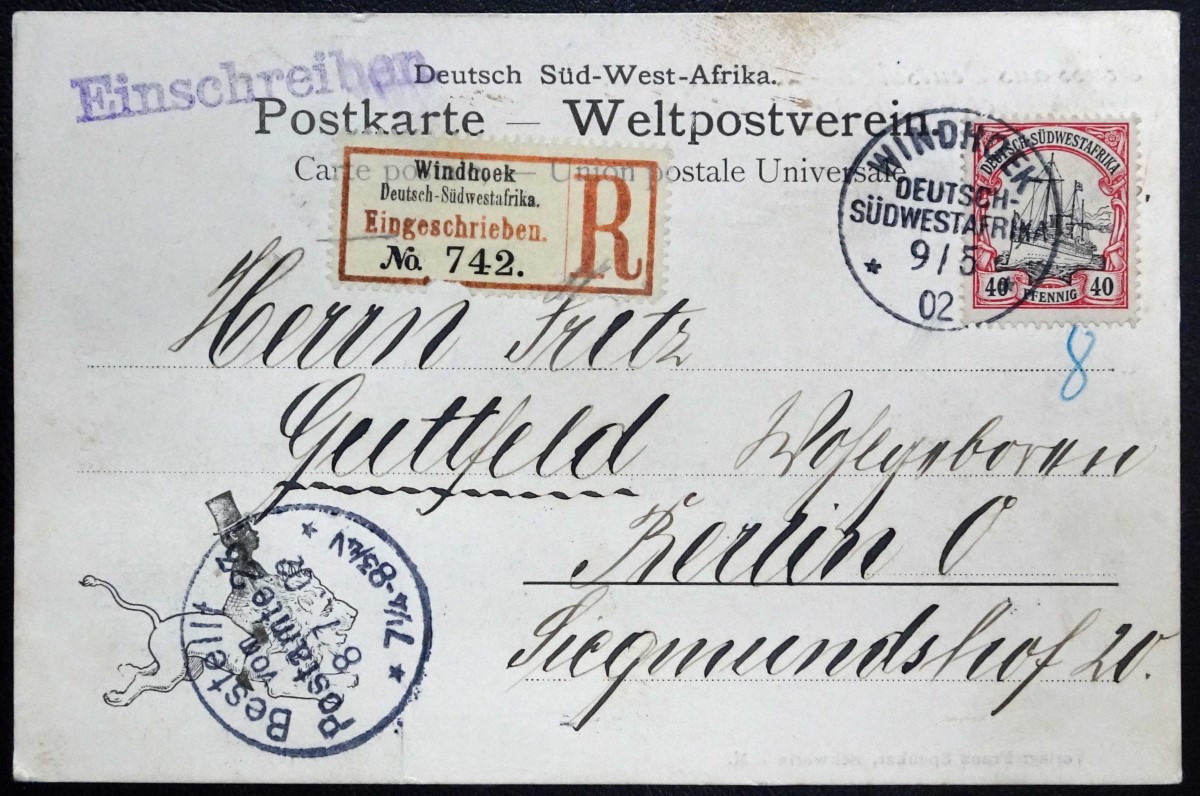 Einschreiben
Deutsch Süd-West-Afrika.
Postkarte — Weltpostverein.
Carte postale — Union postale Universale
Windhoek
Deutsch-Südwestafrika.
Eingeschrieben.
No. 742.
R
WINDHOEK
DEUTSCH-
SÜDWESTAFRIKA
9/5
02
DEUTSCH-SÜDWESTAFRIKA
40 PFENNIG 40
8
Herrn Fritz
Guttfeld Wohlgeboren
Berlin O
Siegmundshof 20.
Bestellt
vom
Postamte
7 1/4-8 3/4 V